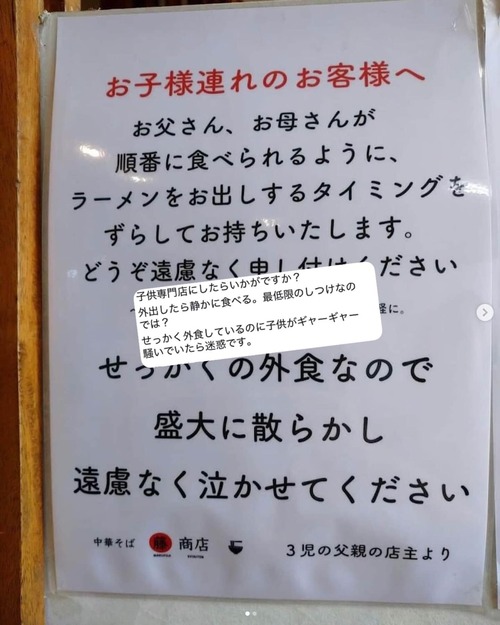 お子様連れのお客様へ
お父さん、お母さんが
順番に食べられるように、
ラーメンをお出しするタイミングを
ずらしてお持ちいたします。
どうぞ遠慮なく申し付けください
子供専門店にしたらいかがですか？
外出したら静かに食べる。最低限のしつけなの
では？
せっかく外食しているのに子供がギャーギャー
騒いでいたら迷惑です。
軽に。
せっかくの外食なので
盛大に散らかし
遠慮なく泣かせてください
中華そば 勝 商店
3児の父親の店主より